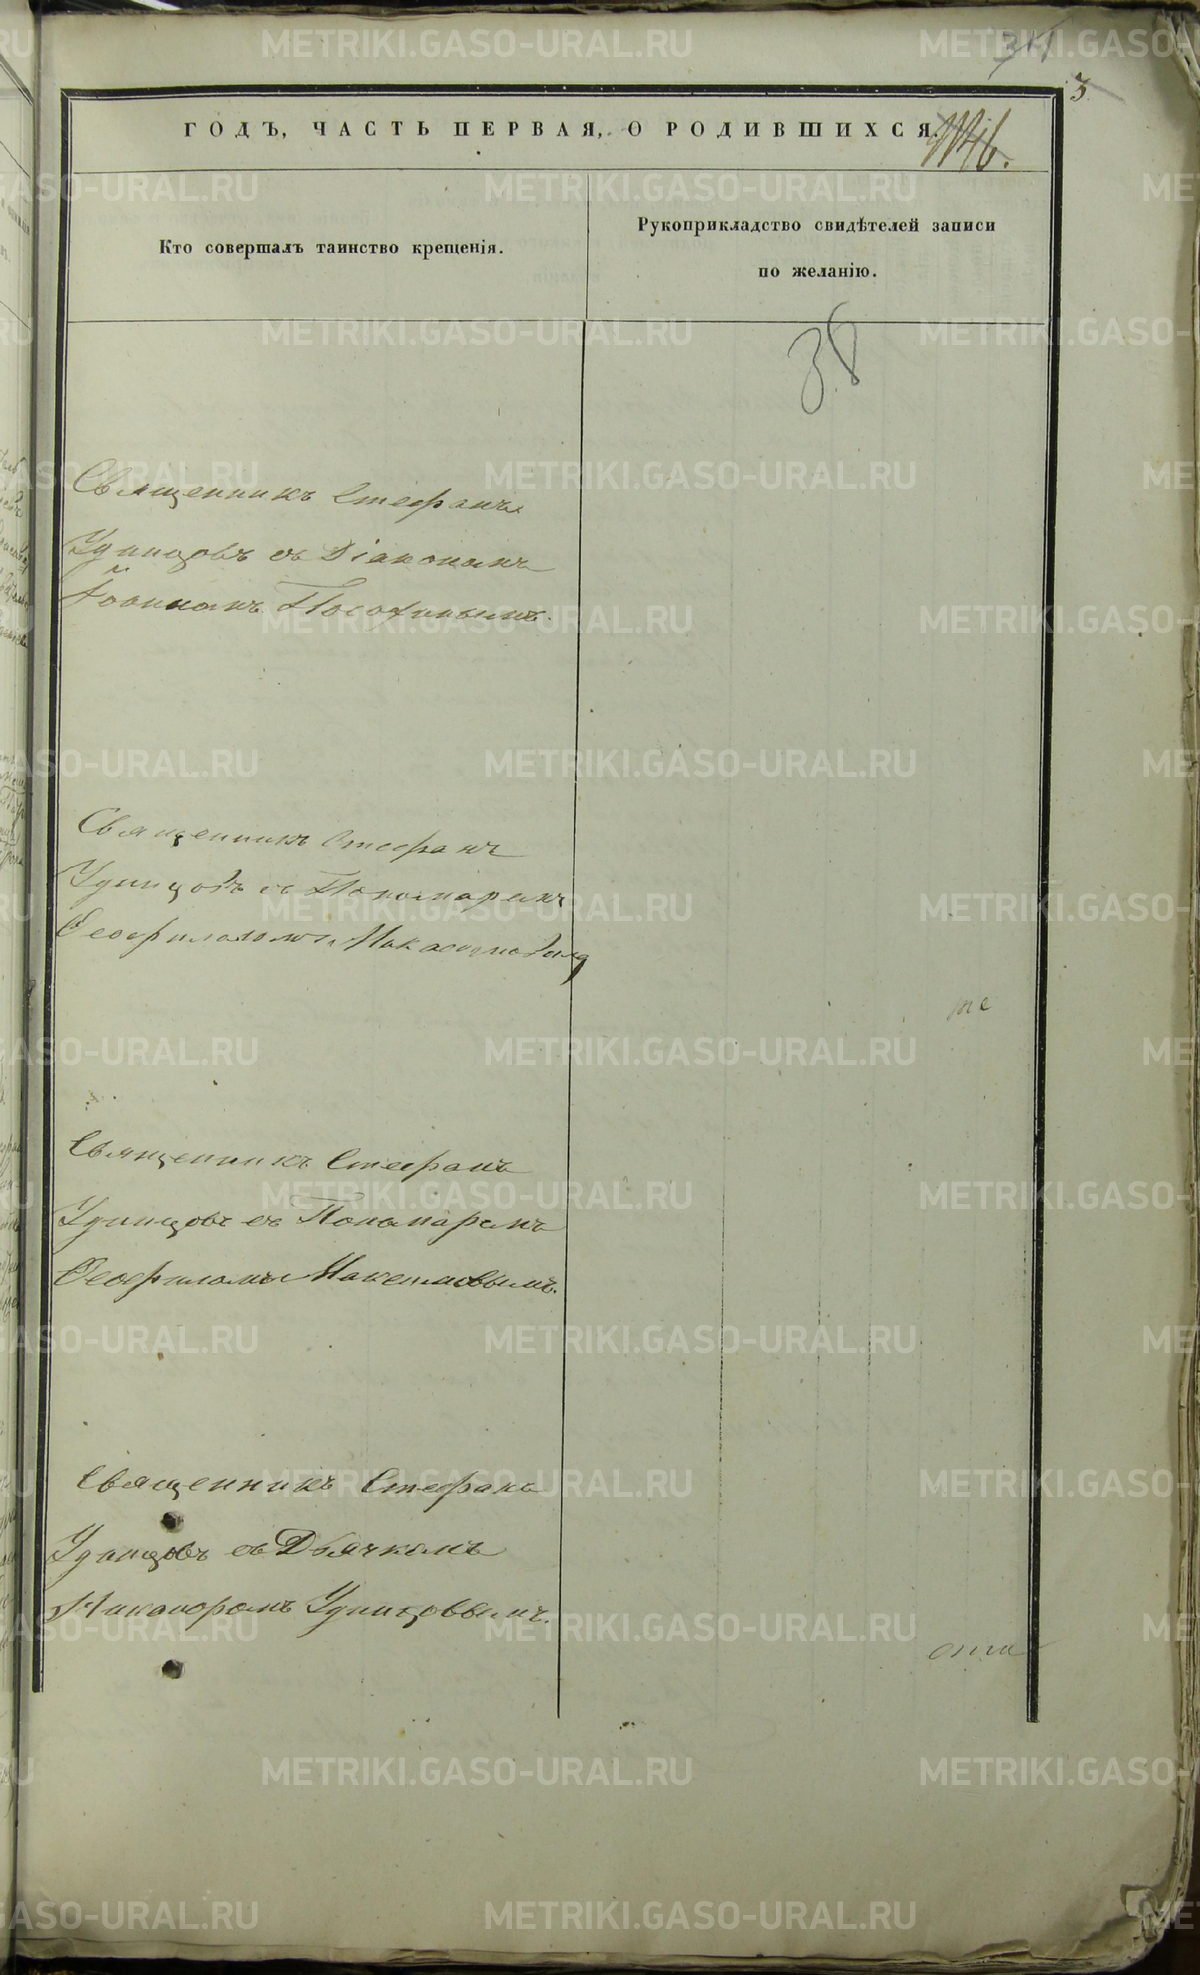 3
ГОДЪ, ЧАСТЬ ПЕРВАЯ, О РОДИВШИХСЯ.
Кто совершалъ таинство крещенія.
Рукоприкладство свидѣтелей записи
по желанію.
38
Священникъ Стефанъ
Удинцовъ съ Діакономъ
Іоанномъ
Священникъ Стефанъ
Удинцовъ съ Пономаремъ
Ѳеофиломъ
Священникъ Стефанъ
Удинцовъ съ Пономаремъ
Ѳеофиломъ
Священникъ Стефанъ
Удинцовъ съ Дьячкомъ
Никаноромъ Удинцовымъ.
METRIKI.GASO-URAL.RU